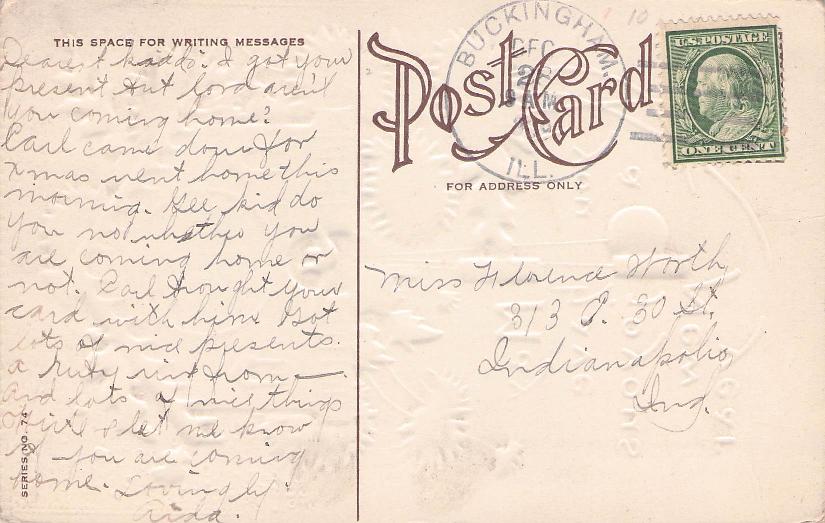 THIS SPACE FOR WRITING MESSAGES
Dearest kiddo: I got your
present but lord ain't
you coming home?
Earl came down for
xmas went home this
morning. Gee kid do
you no whether you
are coming home or
not. Earl brought your
card with him. Got
lots of nice presents.
a Ruby from
And lots of nice things
Write & let me know
if you are coming
home. Lovingly.
Aida.
SERIES NO. 74
Post Card
FOR ADDRESS ONLY
BUCKINGHAM,
DEC
26
8 AM
ILL.
10
U.S. POSTAGE
ONE CENT
Miss Florence Worth
313 E. 30 St.
Indianapolis
Ind.